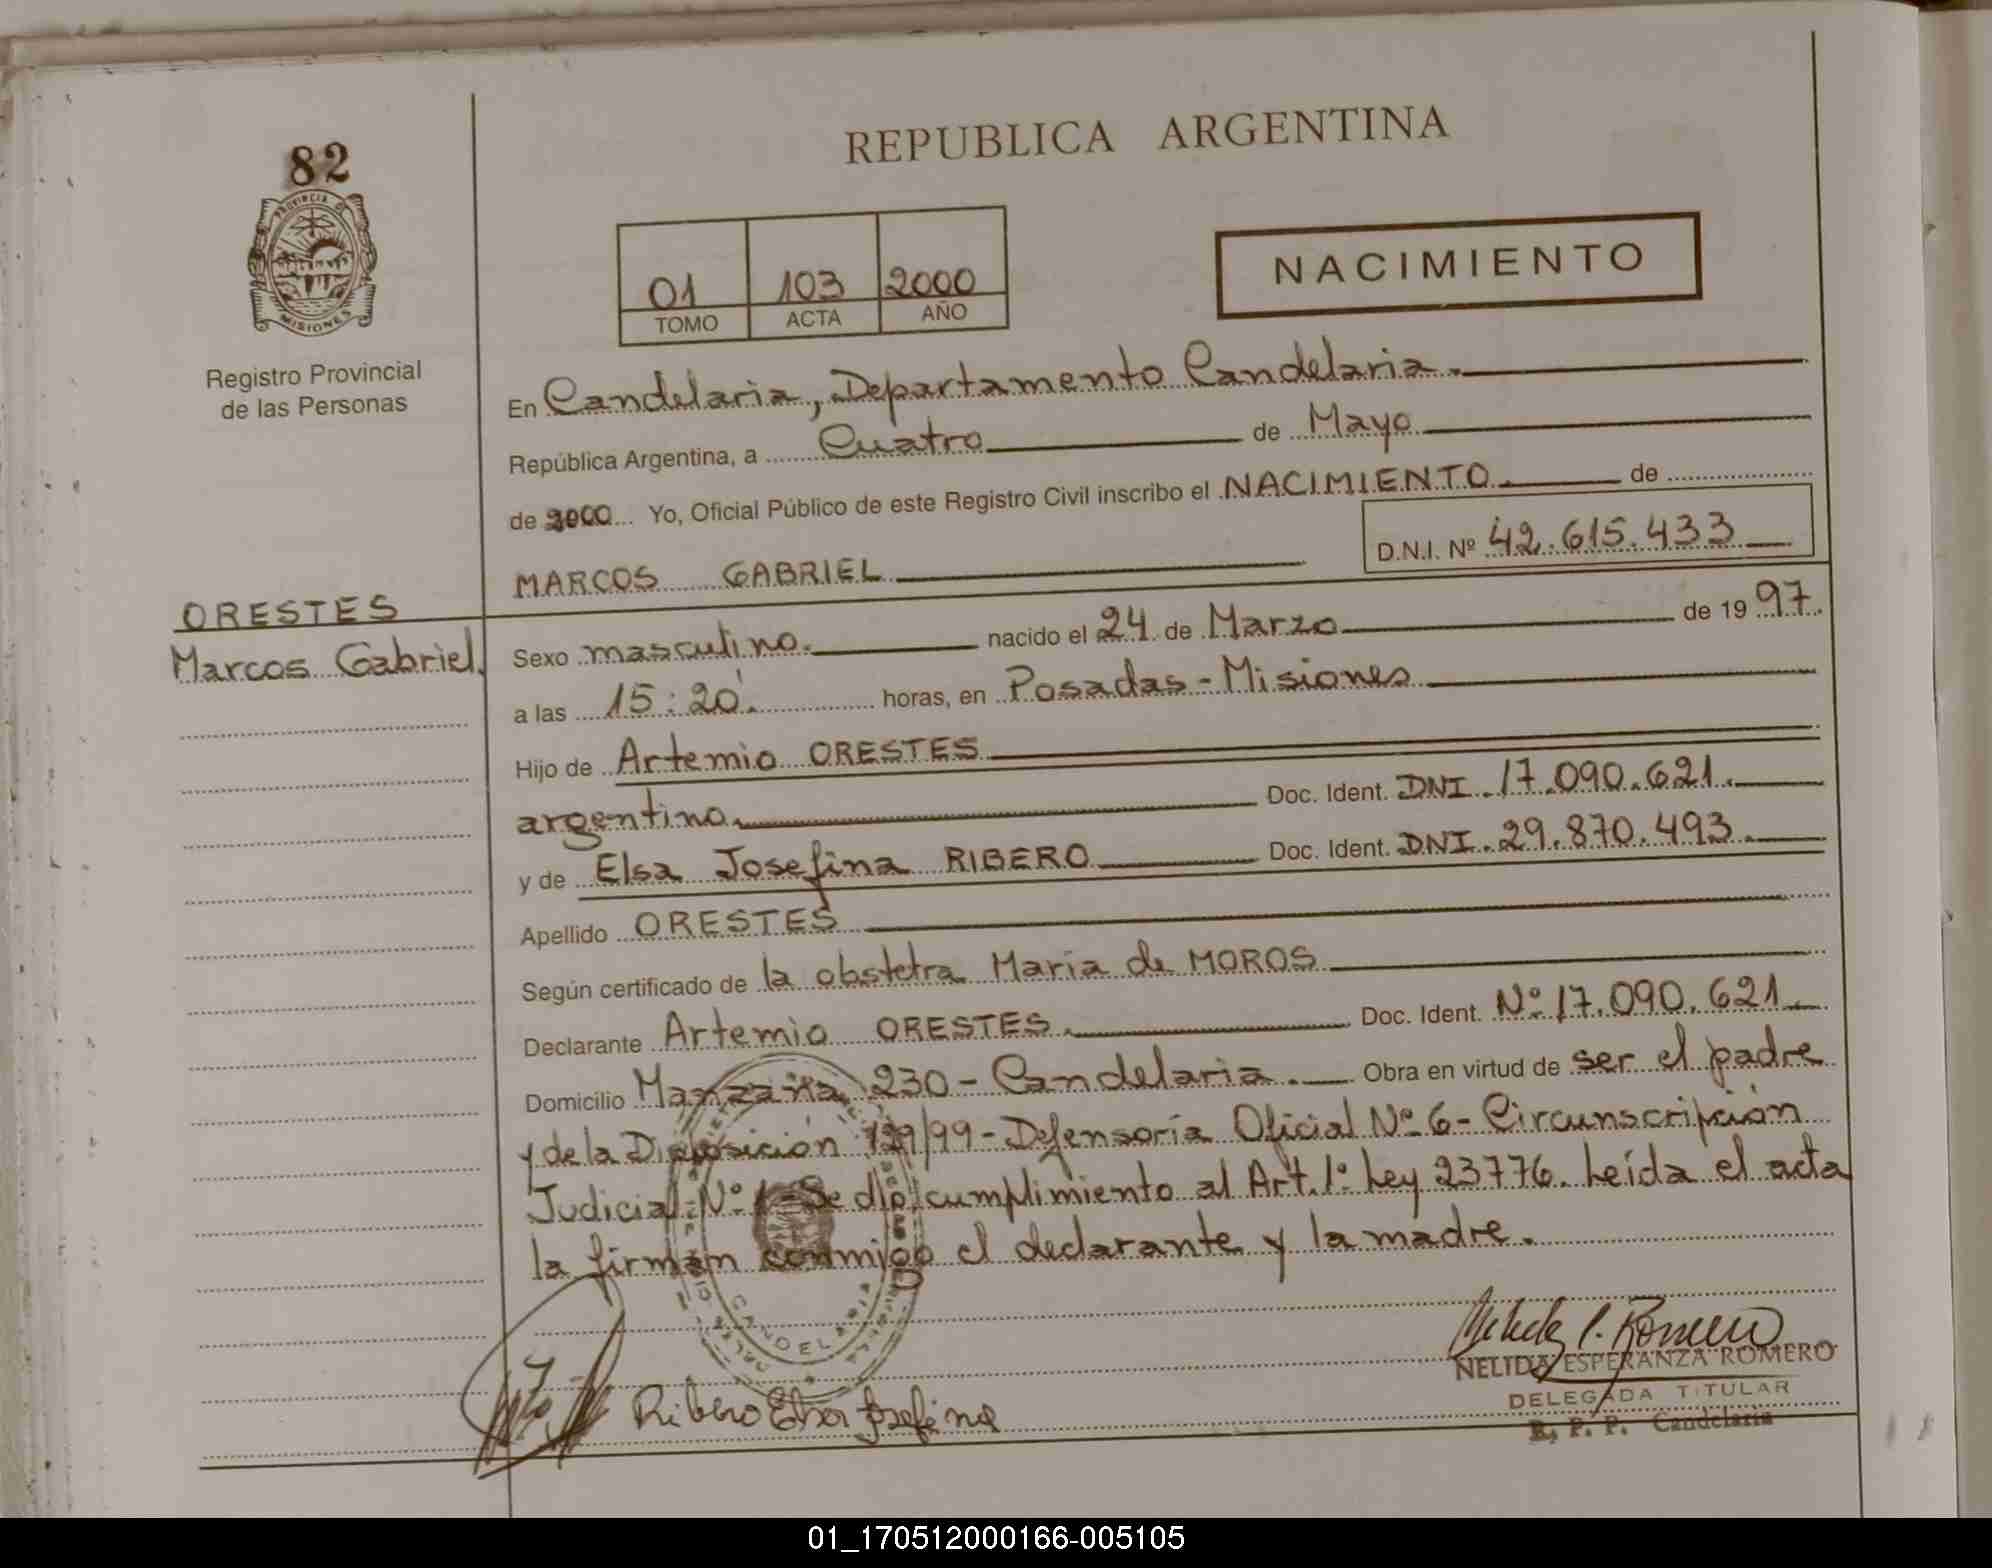 REPUBLICA ARGENTINA
82
PROVINCIA DE
MISIONES
Registro Provincial
de las Personas
01 103 2000
TOMO ACTA AÑO
NACIMIENTO
En Candelaria, Departamento Candelaria.
República Argentina, a Cuatro de Mayo
de 2000 Yo, Oficial Público de este Registro Civil inscribo el NACIMIENTO de
D.N.I. Nº 42.615.433
MARCOS GABRIEL
ORESTES
Marcos Gabriel.
Sexo masculino. nacido el 24 de Marzo de 19 97.
a las 15:20'. horas, en Posadas - Misiones
Hijo de Artemio ORESTES
argentino. Doc. Ident. DNI. 17.090.621.
y de Elsa Josefina RIBERO Doc. Ident. DNI. 29.870.493.
Apellido ORESTES
Según certificado de la obstetra Maria de MOROS
Declarante Artemio ORESTES. Doc. Ident. Nº 17.090.621.
Domicilio Manzana 230 - Candelaria. Obra en virtud de ser el padre
y de la Disposición 129/99 - Defensoría Oficial Nº 6 - Circunscripción
Judicial Nº 1 - Se dio cumplimiento al Art. 1º Ley 23776. Leída el acta
la firman conmigo el declarante y la madre.
CANDELARIA
Ribero Elsa Josefina
NELIDA ESPERANZA ROMERO
DELEGADA TITULAR
R. P. P. Candelaria
01_170512000166-005105